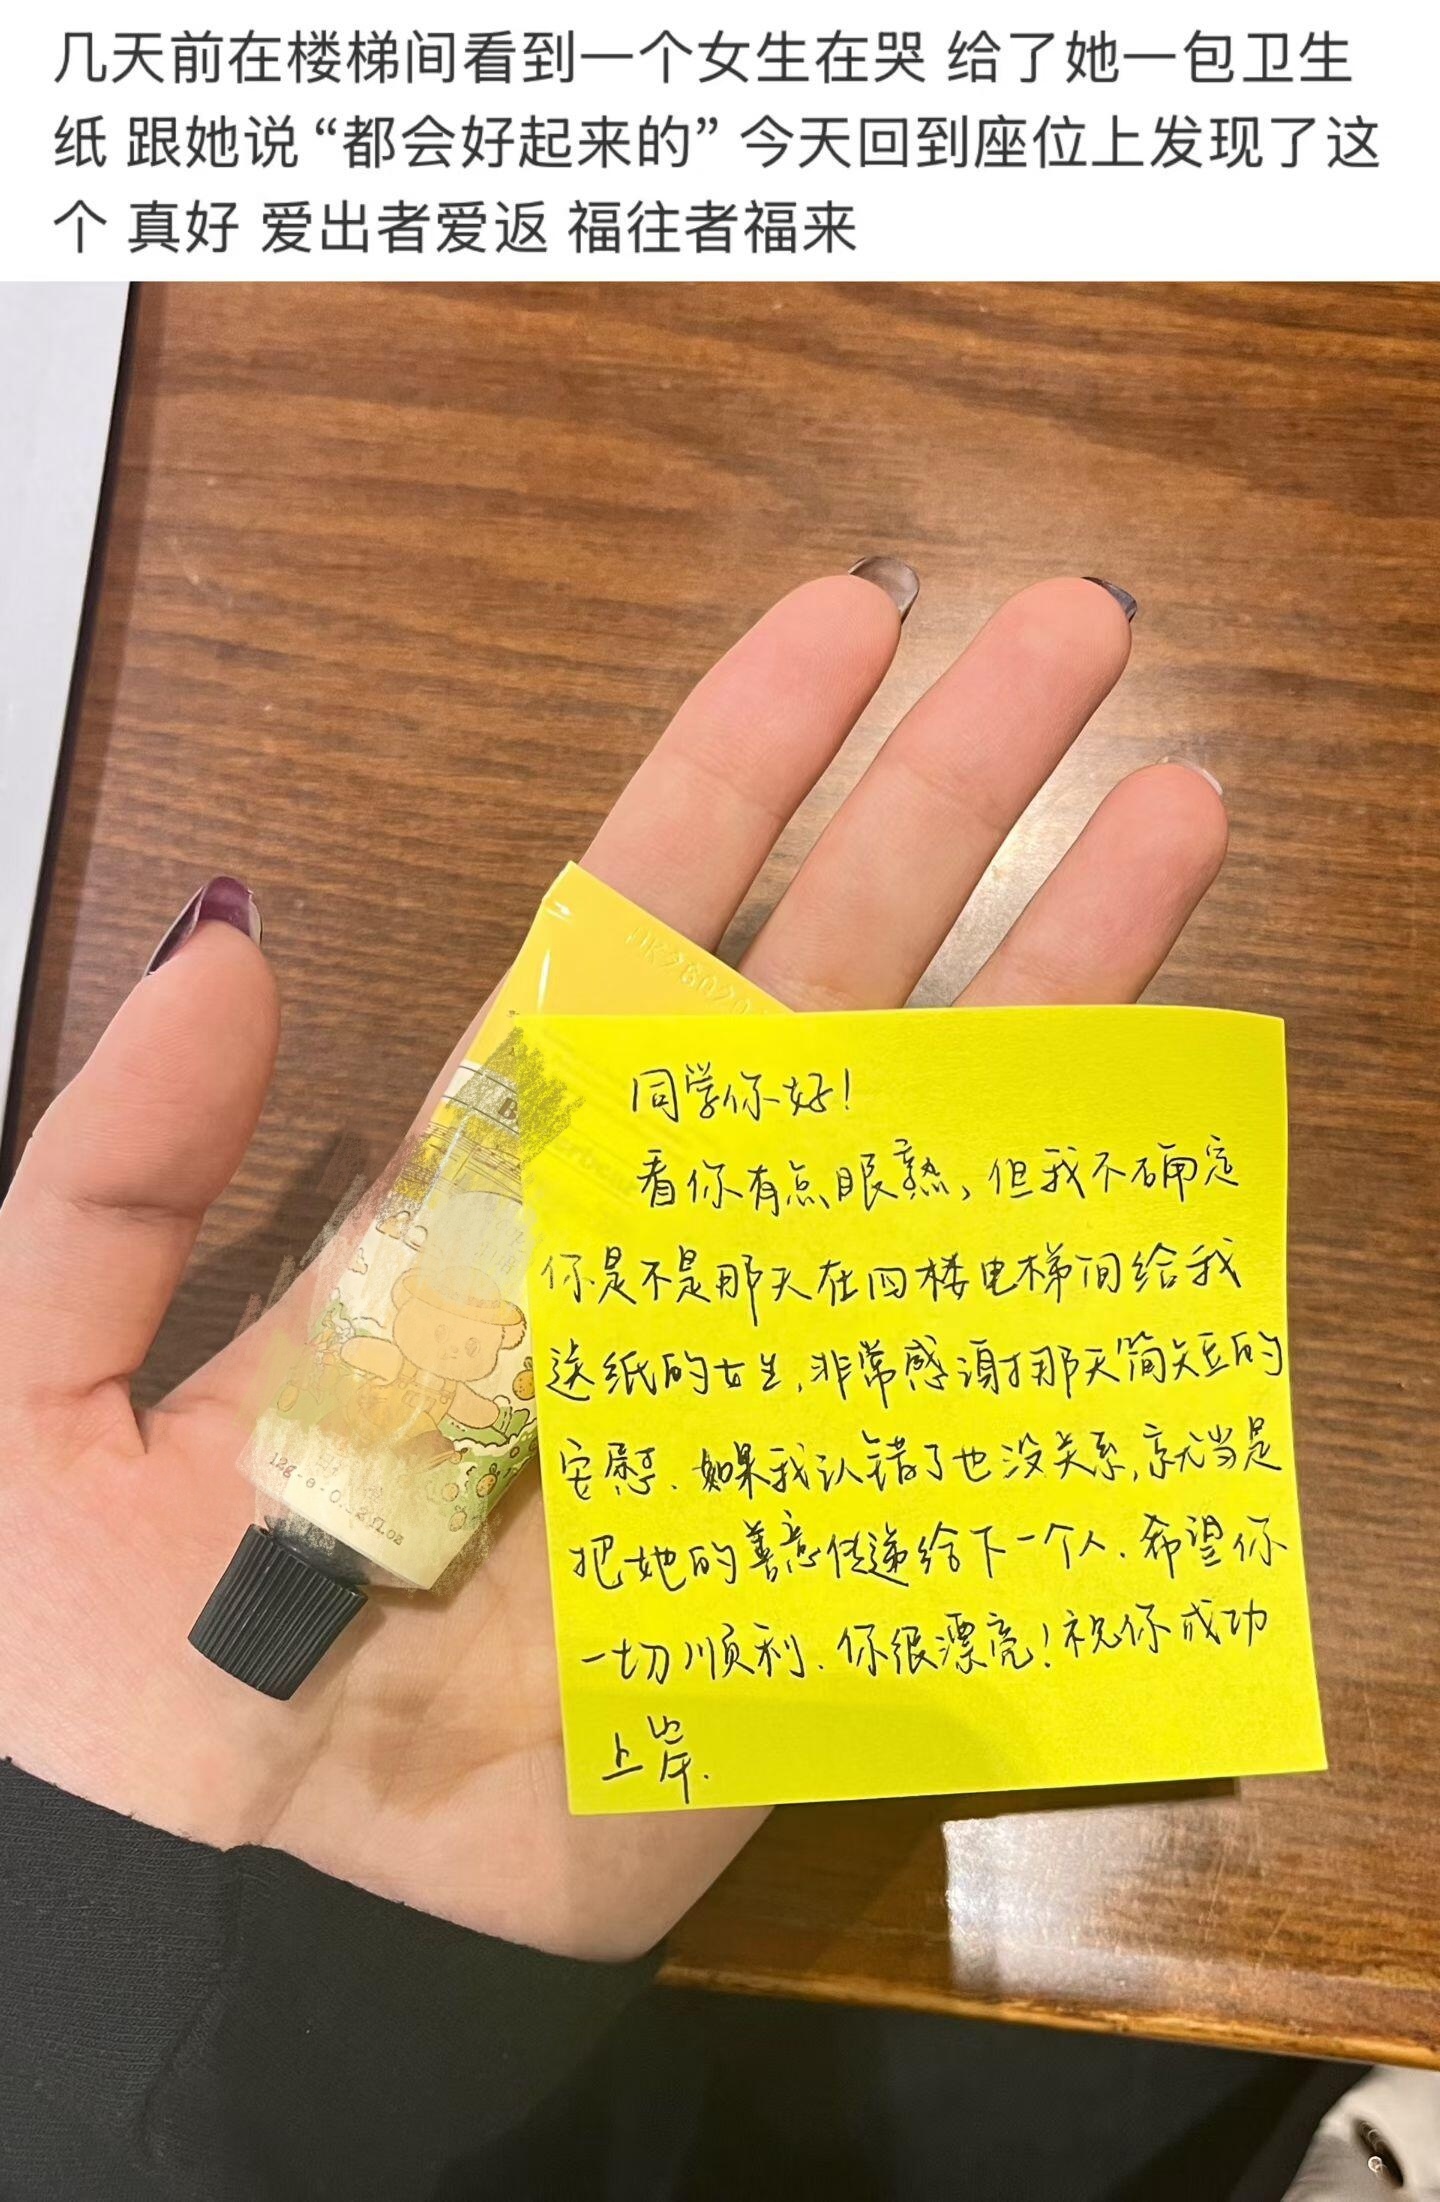 几天前在楼梯间看到一个女生在哭 给了她一包卫生
纸 跟她说 “都会好起来的” 今天回到座位上发现了这
个 真好 爱出者爱返 福往者福来
同学你好！
看你有点眼熟，但我不确定
你是不是那天在四楼电梯间给我
送纸的女生，非常感谢那天简短的
安慰．如果我认错了也没关系，就当是
把她的善意传递给下一个人．希望你
一切顺利．你很漂亮！祝你成功
上岸．